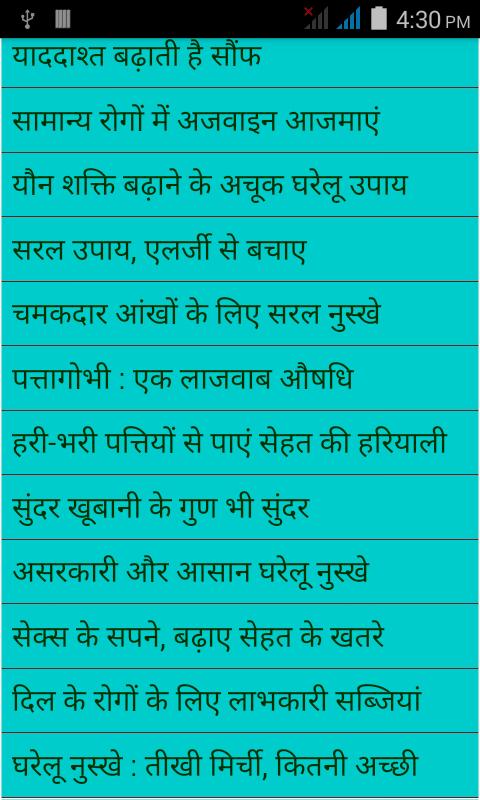 4:30 PM
याददाश्त बढ़ाती है सौंफ
सामान्य रोगों में अजवाइन आजमाएं
यौन शक्ति बढ़ाने के अचूक घरेलू उपाय
सरल उपाय, एलर्जी से बचाए
चमकदार आंखों के लिए सरल नुस्खे
पत्तागोभी : एक लाजवाब औषधि
हरी-भरी पत्तियों से पाएं सेहत की हरियाली
सुंदर खूबानी के गुण भी सुंदर
असरकारी और आसान घरेलू नुस्खे
सेक्स के सपने, बढ़ाए सेहत के खतरे
दिल के रोगों के लिए लाभकारी सब्जियां
घरेलू नुस्खे : तीखी मिर्ची, कितनी अच्छी